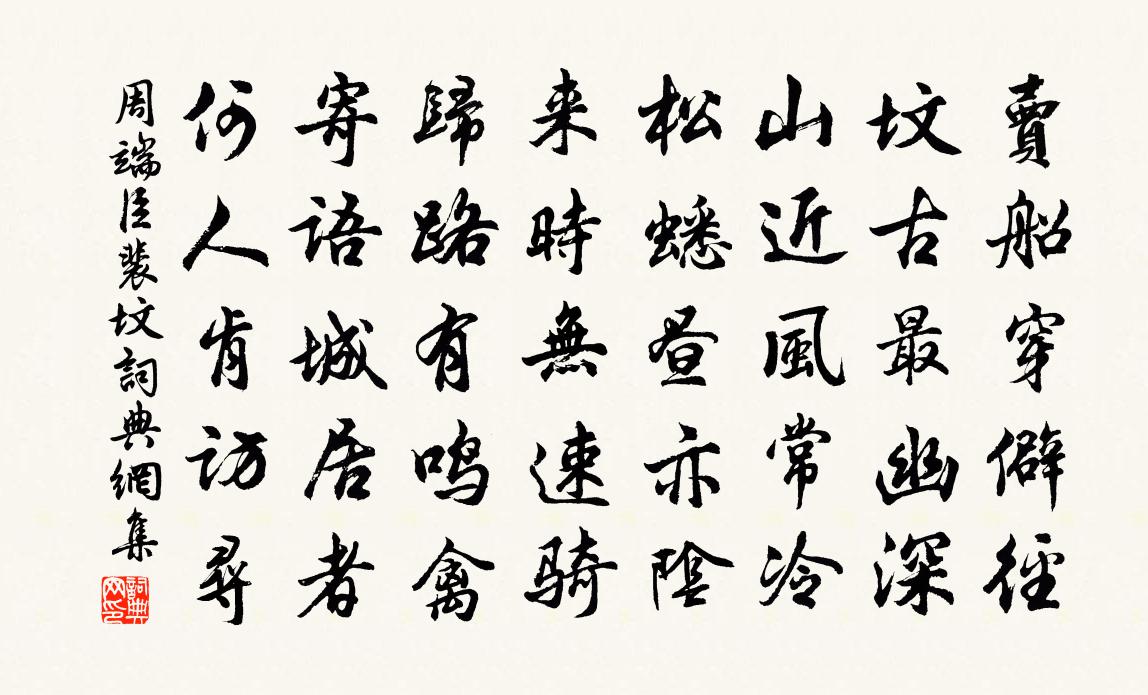 賣船穿僻徑
坟古最幽深
山近風常冷
松蟠昼亦陰
来時無速騎
歸路有鸣禽
寄語城居者
何人肯訪尋
周端臣裴坟詞典網集
詞典网印